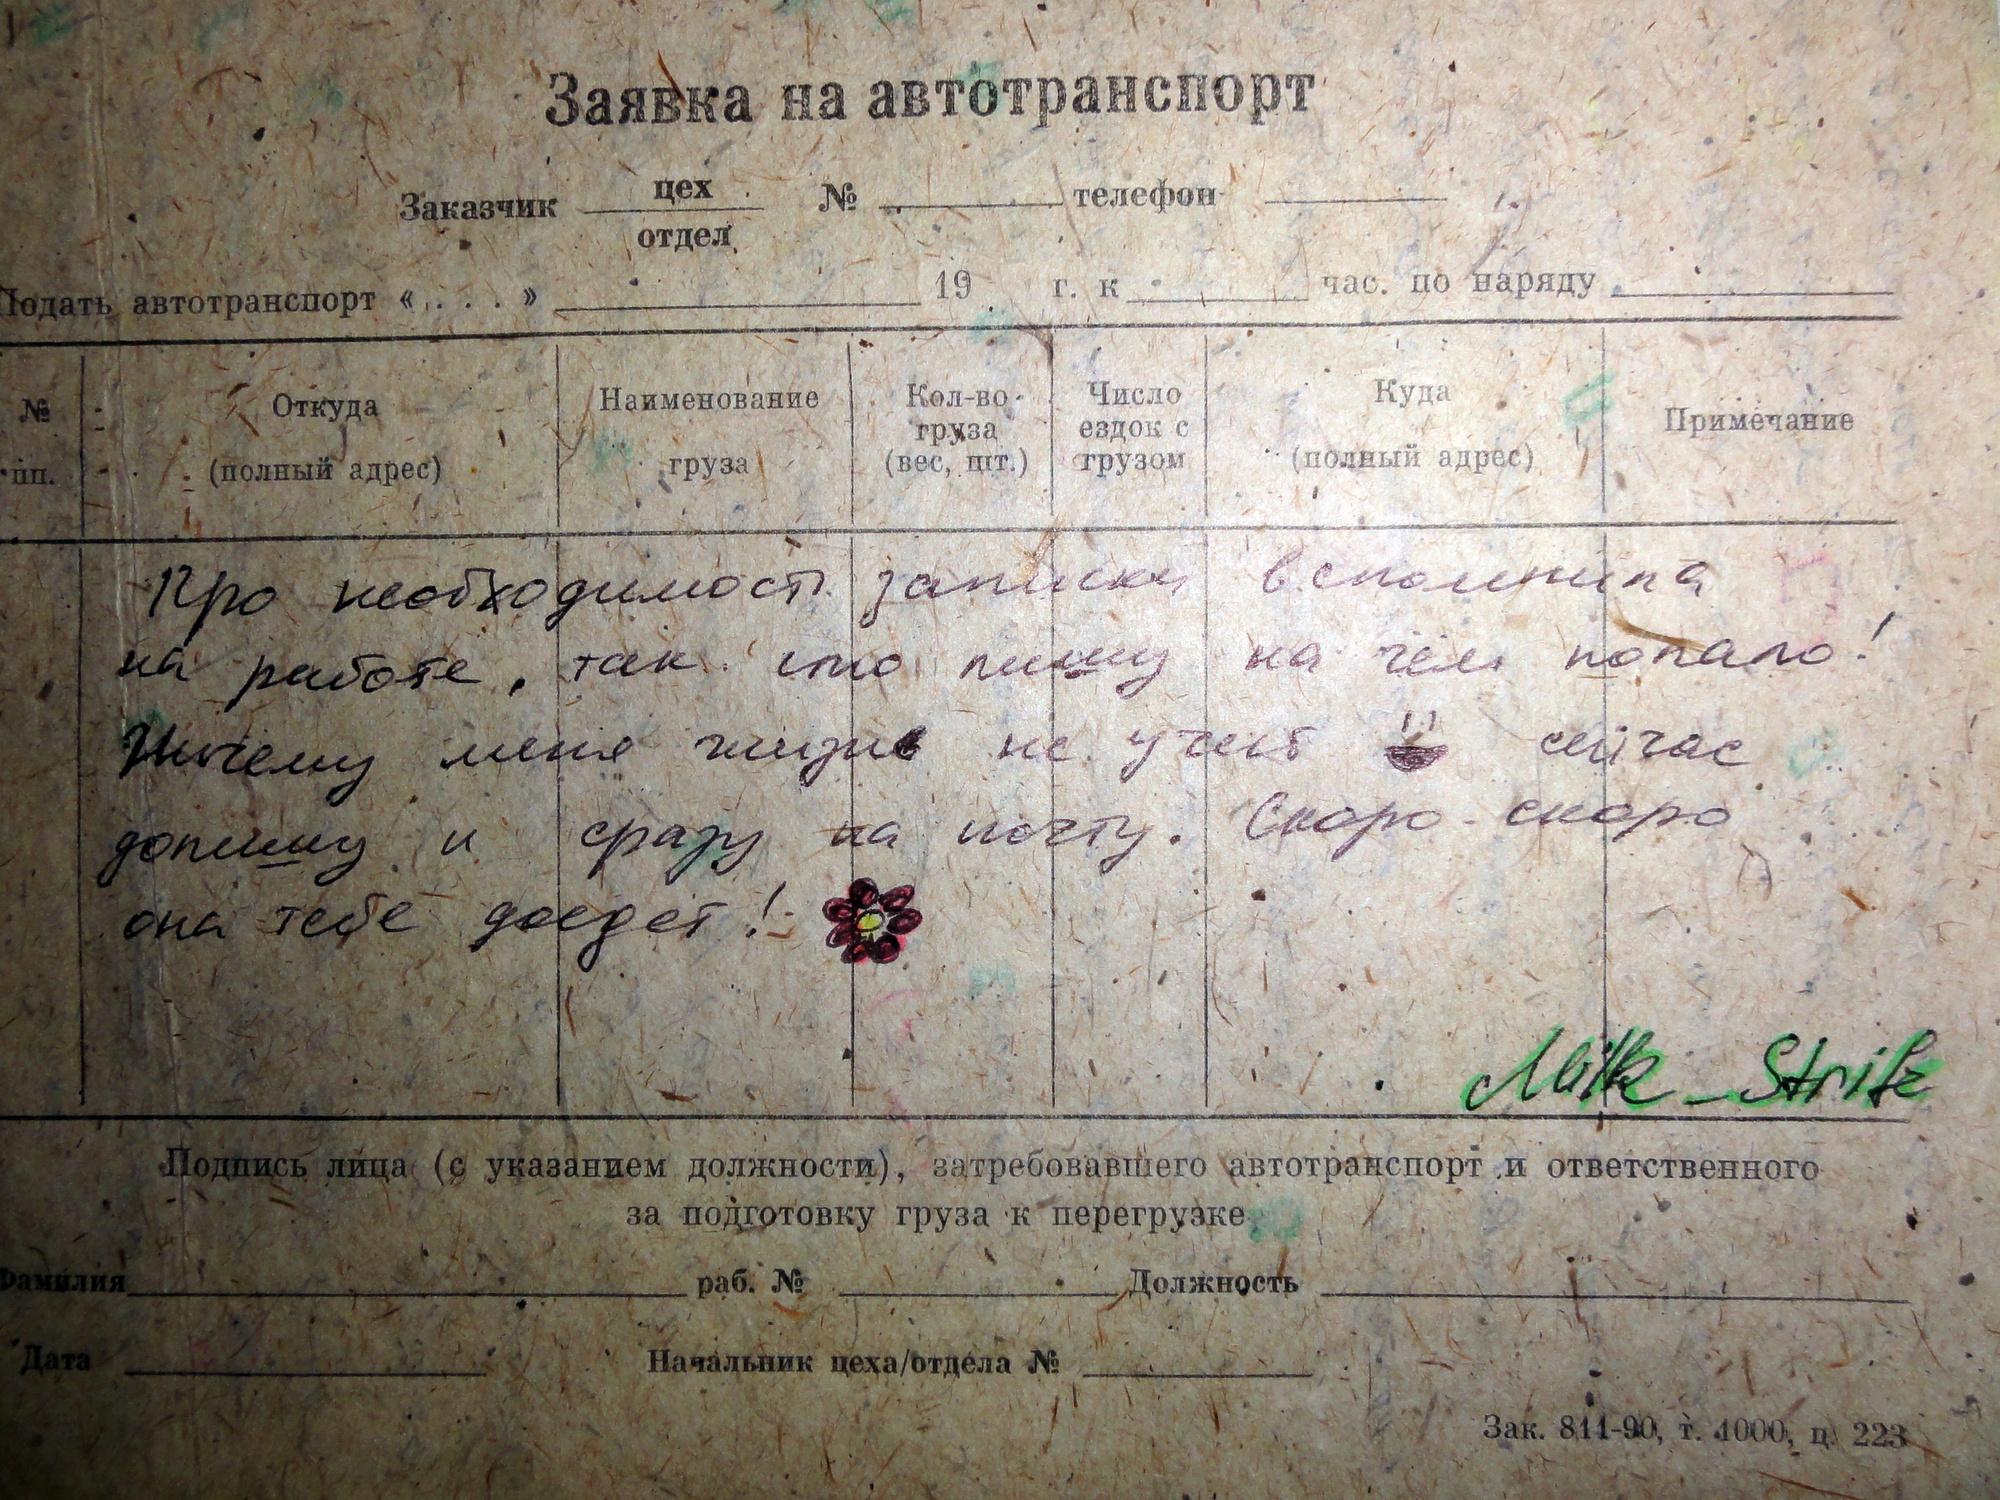 Заявка на автотранспорт
Заказчик цех отдел № телефон
Подать автотранспорт « . . . » 19 г. к час. по наряду
№ пп.
Откуда (полный адрес)
Наименование груза
Кол-во груза (вес, шт.)
Число ездок с грузом
Куда (полный адрес)
Примечание
Про необходимость записки вспомнила
на работе, так что пишу на чём попало!
Ничему меня жизнь не учит сейчас
допишу и сразу на почту. Скоро-скоро
она тебе доедет!
Milk_Strife
Подпись лица (с указанием должности), затребовавшего автотранспорт и ответственного
за подготовку груза к перегрузке
Фамилия раб. № Должность
Дата Начальник цеха/отдела №
Зак. 811-90, т. 1000, ц. 223